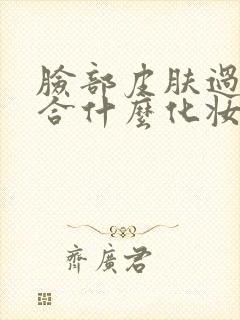 臉部皮膚過
合什麼化妝
齊廣君